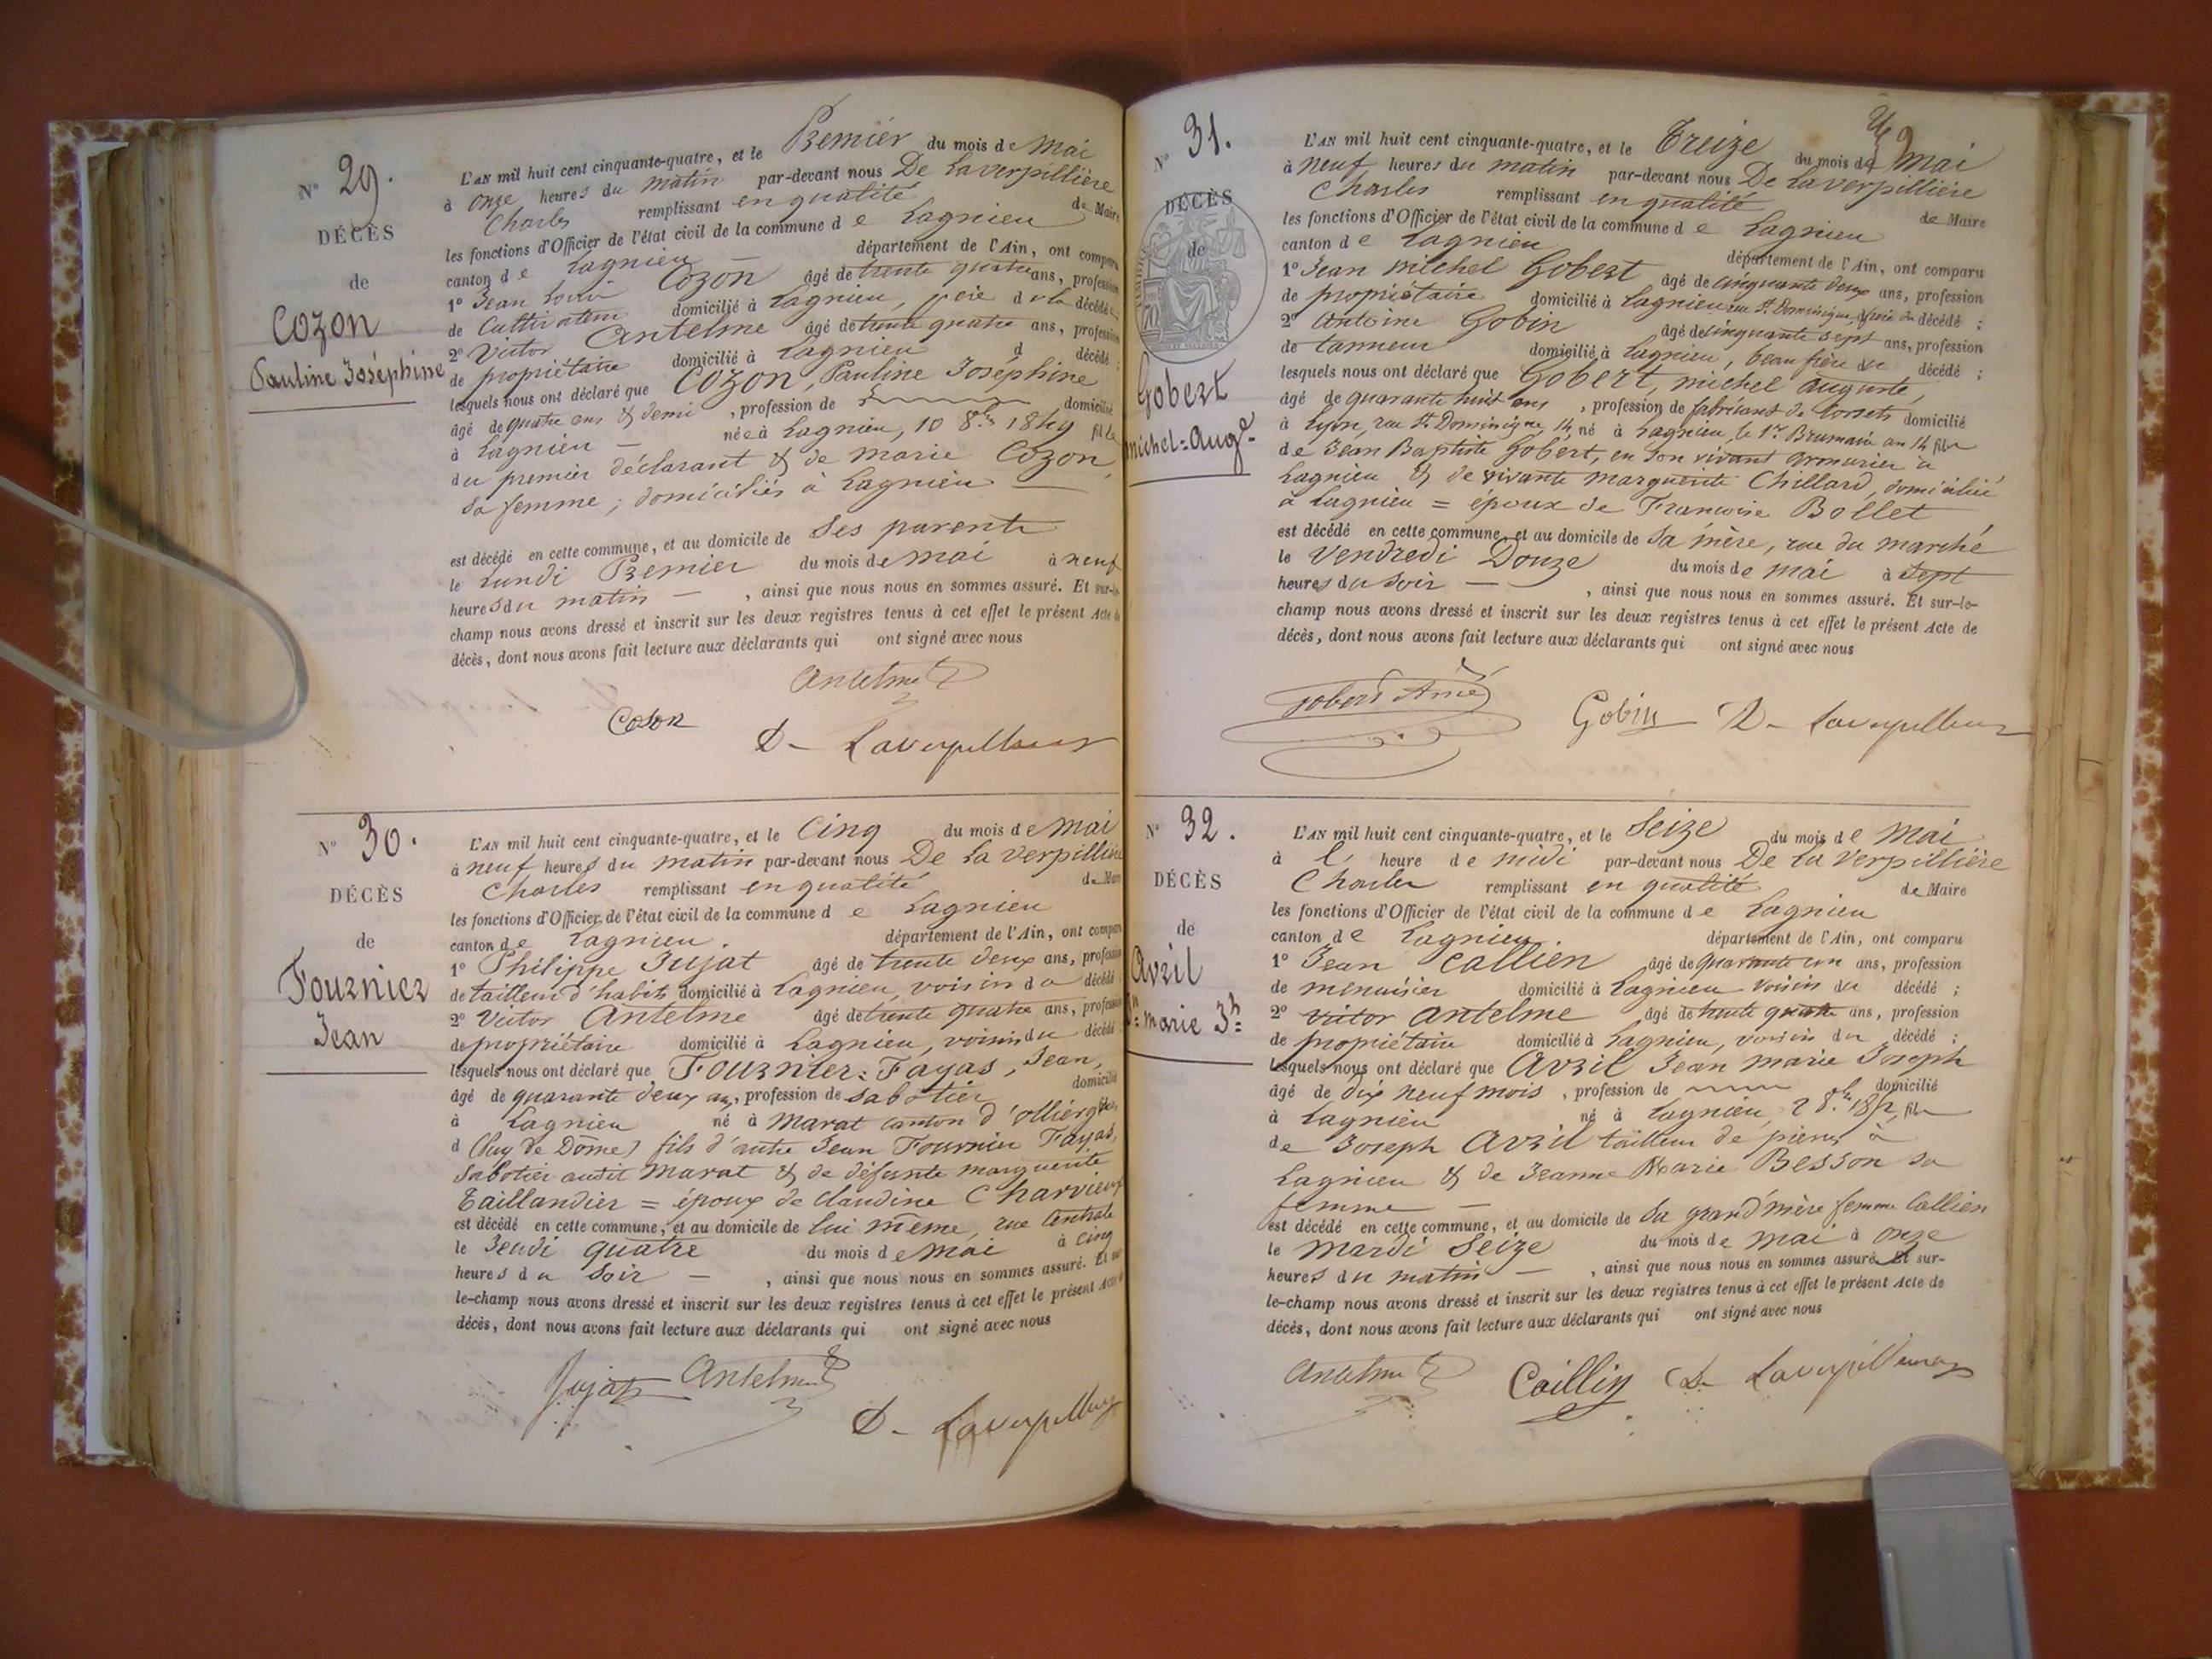 N° 29.
DÉCÈS
de
Cozon
Pauline Joséphine
L'AN mil huit cent cinquante-quatre, et le Premier du mois de mai
à onze heures du matin par-devant nous De Laverpillière
Charles remplissant en qualité de Maire
les fonctions d'Officier de l'état civil de la commune de Lagnieu
canton de Lagnieu département de l'Ain, ont comparu
1° Jean Louis Cozon âgé de trente quatre ans, profession
de Cultivateur domicilié à Lagnieu, père de la décédée;
2° Victor Antelme âgé de trente quatre ans, profession
de propriétaire domicilié à Lagnieu d décédé;
lesquels nous ont déclaré que Cozon, Pauline Joséphine
âgé de quatre ans & demi, profession de domicilié
à Lagnieu née à Lagnieu, 10 8bre 1849 fille
du premier déclarant & de marie Cozon,
sa femme; domiciliés à Lagnieu
est décédé en cette commune, et au domicile de Ses parents
le Lundi Premier du mois de mai à neuf
heures du matin, ainsi que nous nous en sommes assuré. Et sur-le-
champ nous avons dressé et inscrit sur les deux registres tenus à cet effet le présent Acte de
décès, dont nous avons fait lecture aux déclarants qui ont signé avec nous
Antelme
Coson
D- Laverpilliere
N° 30.
DÉCÈS
de
Fournier
Jean
L'AN mil huit cent cinquante-quatre, et le Cinq du mois de mai
à neuf heures du matin par-devant nous De La Verpillière
Charles remplissant en qualité de Maire
les fonctions d'Officier de l'état civil de la commune de Lagnieu
canton de Lagnieu. département de l'Ain, ont comparu
1° Philippe Jujat âgé de trente deux ans, profession
de tailleur d'habits domicilié à Lagnieu, voisin du décédé;
2° Victor Antelme âgé de trente quatre ans, profession
de propriétaire domicilié à Lagnieu, voisin du décédé
lesquels nous ont déclaré que Fournier=Fayas, Jean,
âgé de quarante deux ans, profession de Sabotier domicilié
à Lagnieu né à Marat canton d'olliergues
d (Puy de Dôme) fils d'autre Jean Fournier Fayas,
Sabotier audit Marat & de défunte marguerite
Taillandier = époux de Claudine Charvieux
est décédé en cette commune, et au domicile de lui même, rue Centrale
le Jeudi quatre du mois de mai à Cinq
heures du Soir, ainsi que nous nous en sommes assuré. Et sur-
le-champ nous avons dressé et inscrit sur les deux registres tenus à cet effet le présent Acte de
décès, dont nous avons fait lecture aux déclarants qui ont signé avec nous
Jujat Antelme
D- Laverpilliere
N° 31.
DÉCÈS
de
Gobert
michel=Auge
L'AN mil huit cent cinquante-quatre, et le Treize du mois de mai
à neuf heures du matin par-devant nous De Laverpillière
Charles remplissant en qualité de Maire
les fonctions d'Officier de l'état civil de la commune de Lagnieu
canton de Lagnieu département de l'Ain, ont comparu
1° Jean michel Gobert âgé de cinquante deux ans, profession
de propriétaire domicilié à Lagnieu rue St. Dominique, frère du décédé;
2° Antoine Gobin âgé de cinquante sept ans, profession
de tanneur domicilié à Lagnieu, beau frère du décédé;
lesquels nous ont déclaré que Gobert, michel auguste,
âgé de quarante huit ans, profession de fabricant de Corsets domicilié
à Lyon, rue St. Dominique, 14, né à Lagnieu, le 1er Brumaire an 14 fils
de Jean Baptiste Gobert, en son vivant armurier à
Lagnieu & de vivante marguerite Chillard, domiciliée
à Lagnieu = époux de Françoise Bollet
est décédé en cette commune, et au domicile de Sa mère, rue du marché
le Vendredi Douze du mois de mai à Sept
heures du Soir, ainsi que nous nous en sommes assuré. Et sur-le-
champ nous avons dressé et inscrit sur les deux registres tenus à cet effet le présent Acte de
décès, dont nous avons fait lecture aux déclarants qui ont signé avec nous
Gobert Ainé Gobin D- Laverpilliere
N° 32.
DÉCÈS
de
Avril
Jn marie Jh
L'AN mil huit cent cinquante-quatre, et le Seize du mois de mai
à l' heure de midi par-devant nous De La Verpillière
Charles remplissant en qualité de Maire
les fonctions d'Officier de l'état civil de la commune de Lagnieu
canton de Lagnieu. département de l'Ain, ont comparu
1° Jean Callien âgé de quarante un ans, profession
de menuisier domicilié à Lagnieu voisin du décédé;
2° Victor Antelme âgé de trente quatre ans, profession
de propriétaire domicilié à Lagnieu, voisin du décédé;
lesquels nous ont déclaré que Avril Jean marie Joseph
âgé de dix neuf mois, profession de domicilié
à Lagnieu né à Lagnieu, 2 8bre 1852, fils
de Joseph Avril tailleur de pierres à
Lagnieu & de Jeanne Marie Besson sa
femme
est décédé en cette commune, et au domicile de Sa grand'mère femme Callien
le mardi Seize du mois de mai à onze
heures du matin, ainsi que nous nous en sommes assuré. Et sur-
le-champ nous avons dressé et inscrit sur les deux registres tenus à cet effet le présent Acte de
décès, dont nous avons fait lecture aux déclarants qui ont signé avec nous
Antelme Caillin D- Laverpilliere